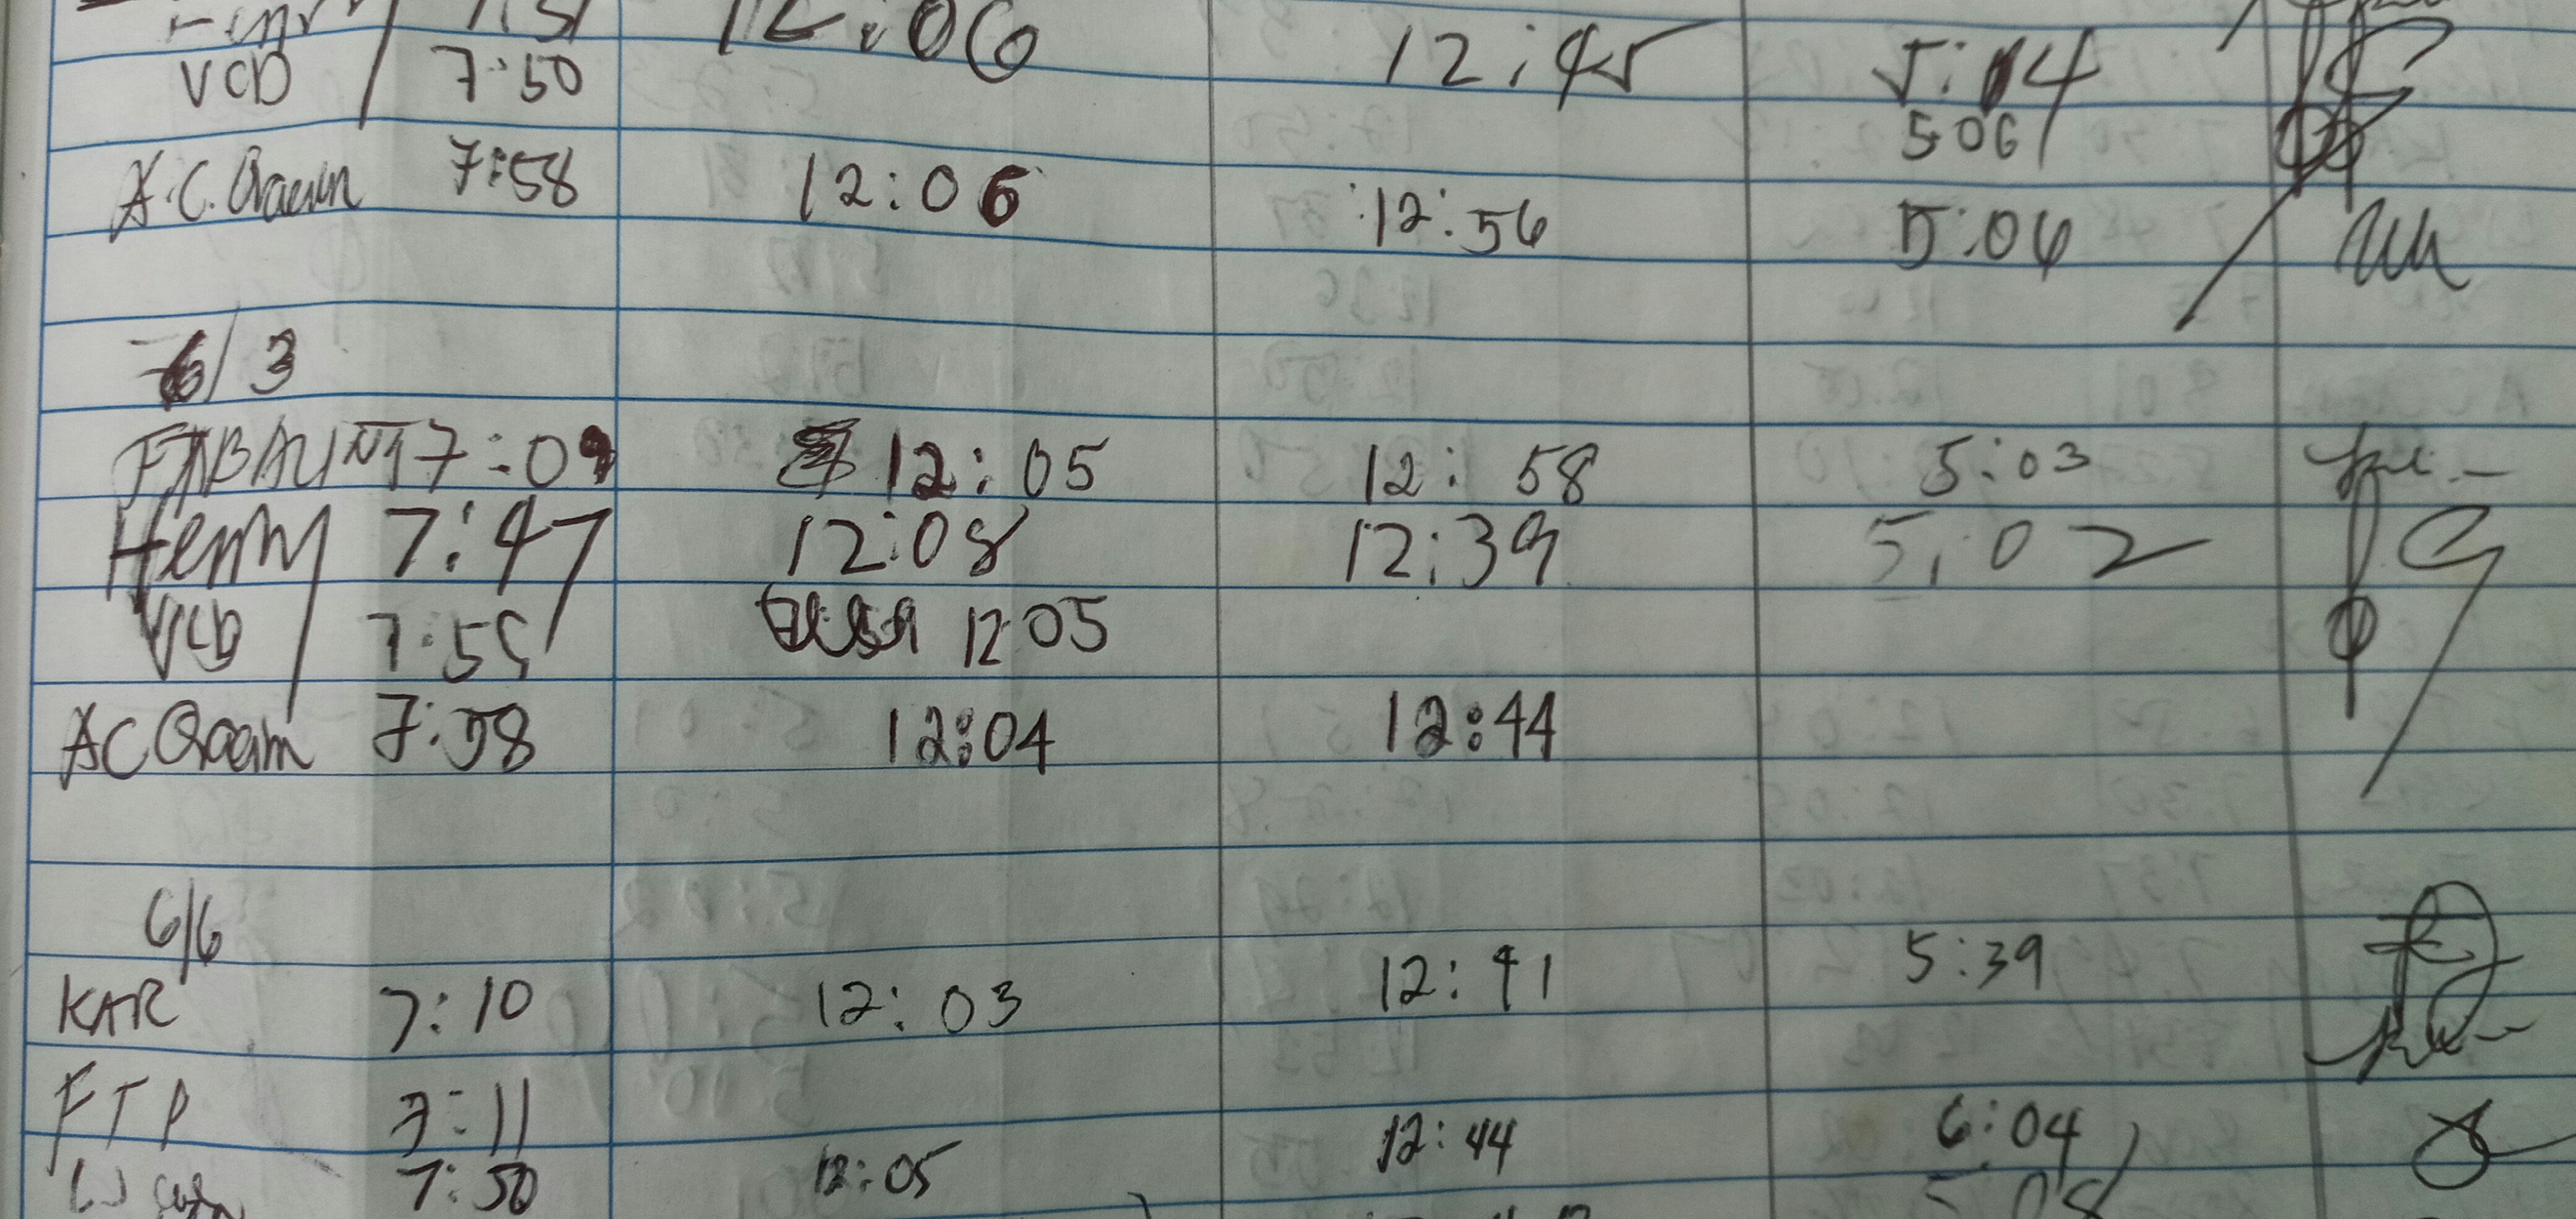 12:06 12:45 5:14
VCD 7:50 5 06
A.C. 7:58 12:06 12:56 5:06
6/3
7:09 12:05 12: 58 5:03
Henry 7:47 12:08 12:39 5:02
VCD 7:55 12 05
AC 7:58 12:04 12:44
6/6
KAR 7:10 12: 03 12:41 5:39
FTP 7:11
7:50 12:05 12:44 6:04